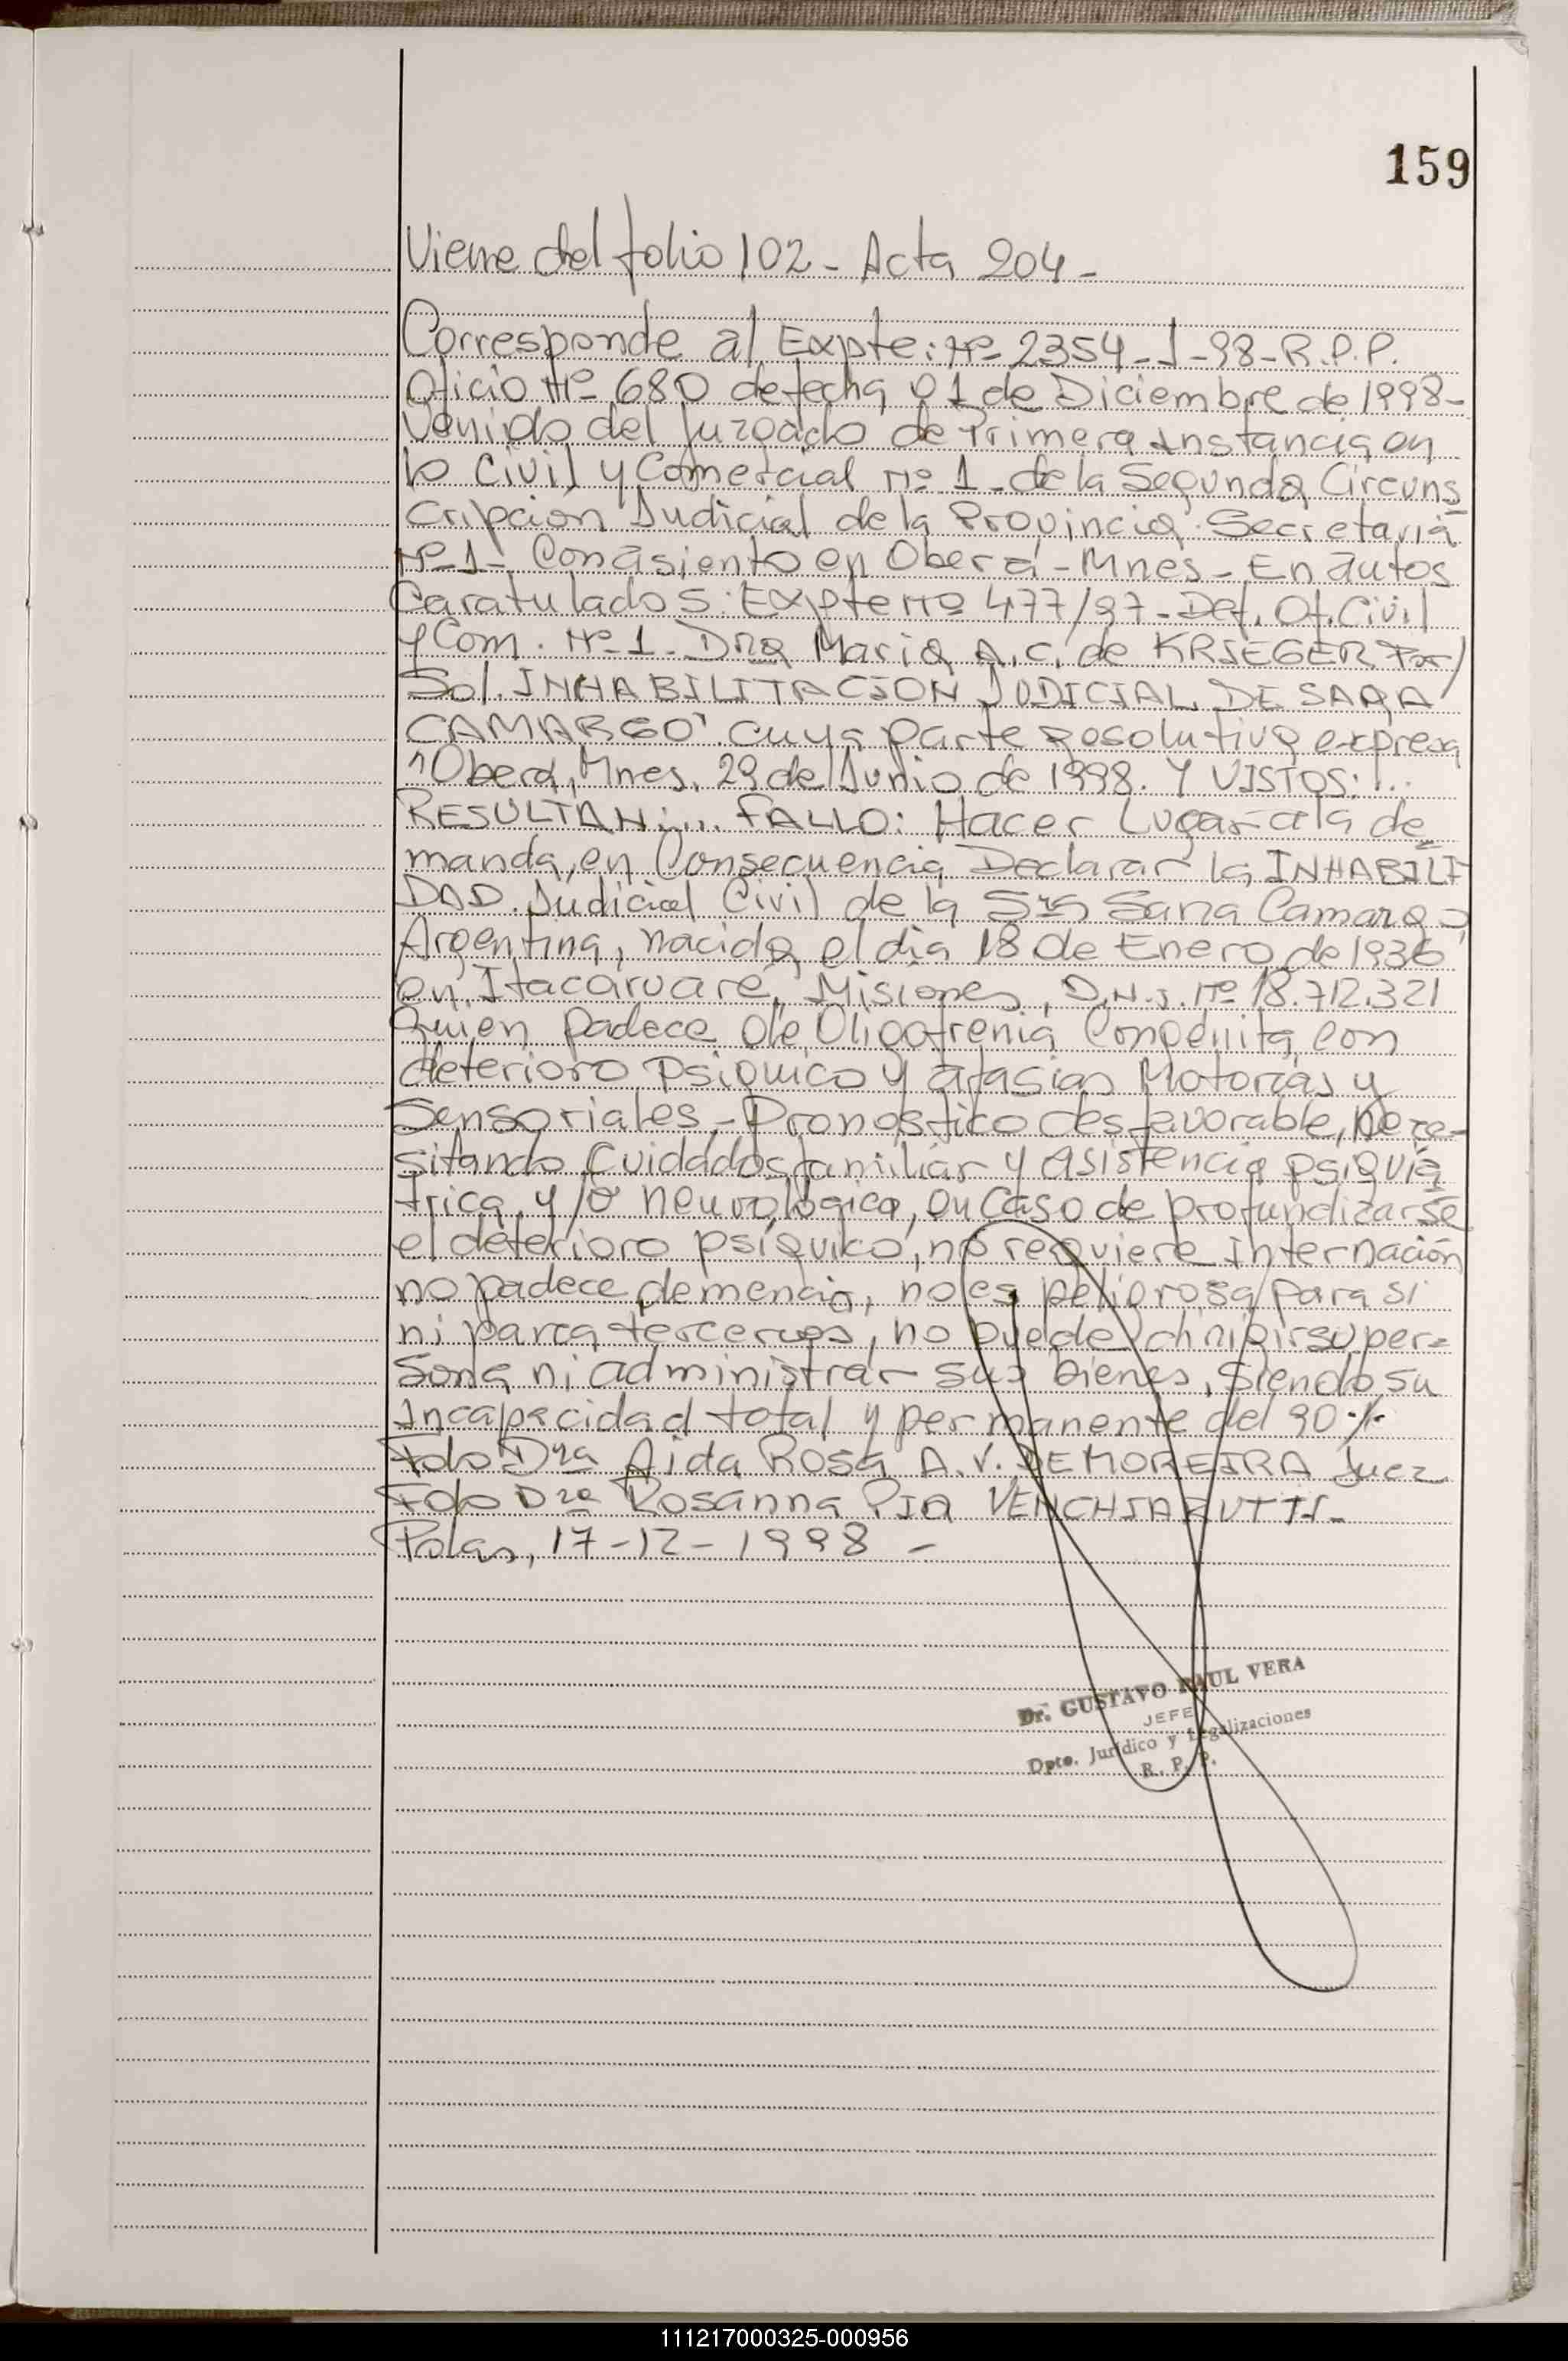 159
Viene del folio 102 - Acta 204 -
Corresponde al Expte: Nº 2354-J-98-R.P.P.
Oficio Nº 680 de fecha 01 de Diciembre de 1998-
Venido del Juzgado de Primera Instancia en
lo Civil y Comercial Nº 1 - de la Segunda Circuns
cripcion Judicial de la Provincia. Secretaria
Nº 1 - Con asiento en Oberá - Mnes - En autos
Caratulados: Expte Nº 477/97 - Def. Of. Civil
y Com. Nº 1 - Dra Maria A.C. de KRIEGER Por/
Sol. INHABILITACION JUDICIAL DE SARA
CAMARGO". cuya parte resolutiva expresa
"Oberá, Mnes. 29 de Junio de 1998. Y VISTOS:...
RESULTAN:... FALLO: Hacer Lugar a la de
manda, en Consecuencia Declarar la INHABILI
DAD. Judicial Civil de la Sra Sara Camargo,
Argentina, nacida el dia 18 de Enero de 1936
en Itacaruaré, Misiones, D.N.I. Nº 18.712.321
Quien padece de Oligofrenia Congenita con
deterioro psiquico y afasias Motoras y
Sensoriales, - Pronóstico desfavorable, nece-
sitando Cuidados familiar y asistencia psiquiá
trica y/o neurológica, en Caso de profundizarse
el deterioro psíquico, no requiere Internación
no padece demencia, no es peligrosa para si
ni para terceros, no puede dirigir su per=
sona ni administrar sus bienes, siendo su
Incapacidad total y permanente del 90 %
Fdo Dra Aida Rosa A.V. DE MOREIRA Juez
Fdo Dra Rosanna Pia VENCHIARUTTI -
Pdas, 17-12-1998 -
Dr. GUSTAVO RAUL VERA
JEFE
Dpto. Jurídico y Legalizaciones
R. P. P.
111217000325-000956